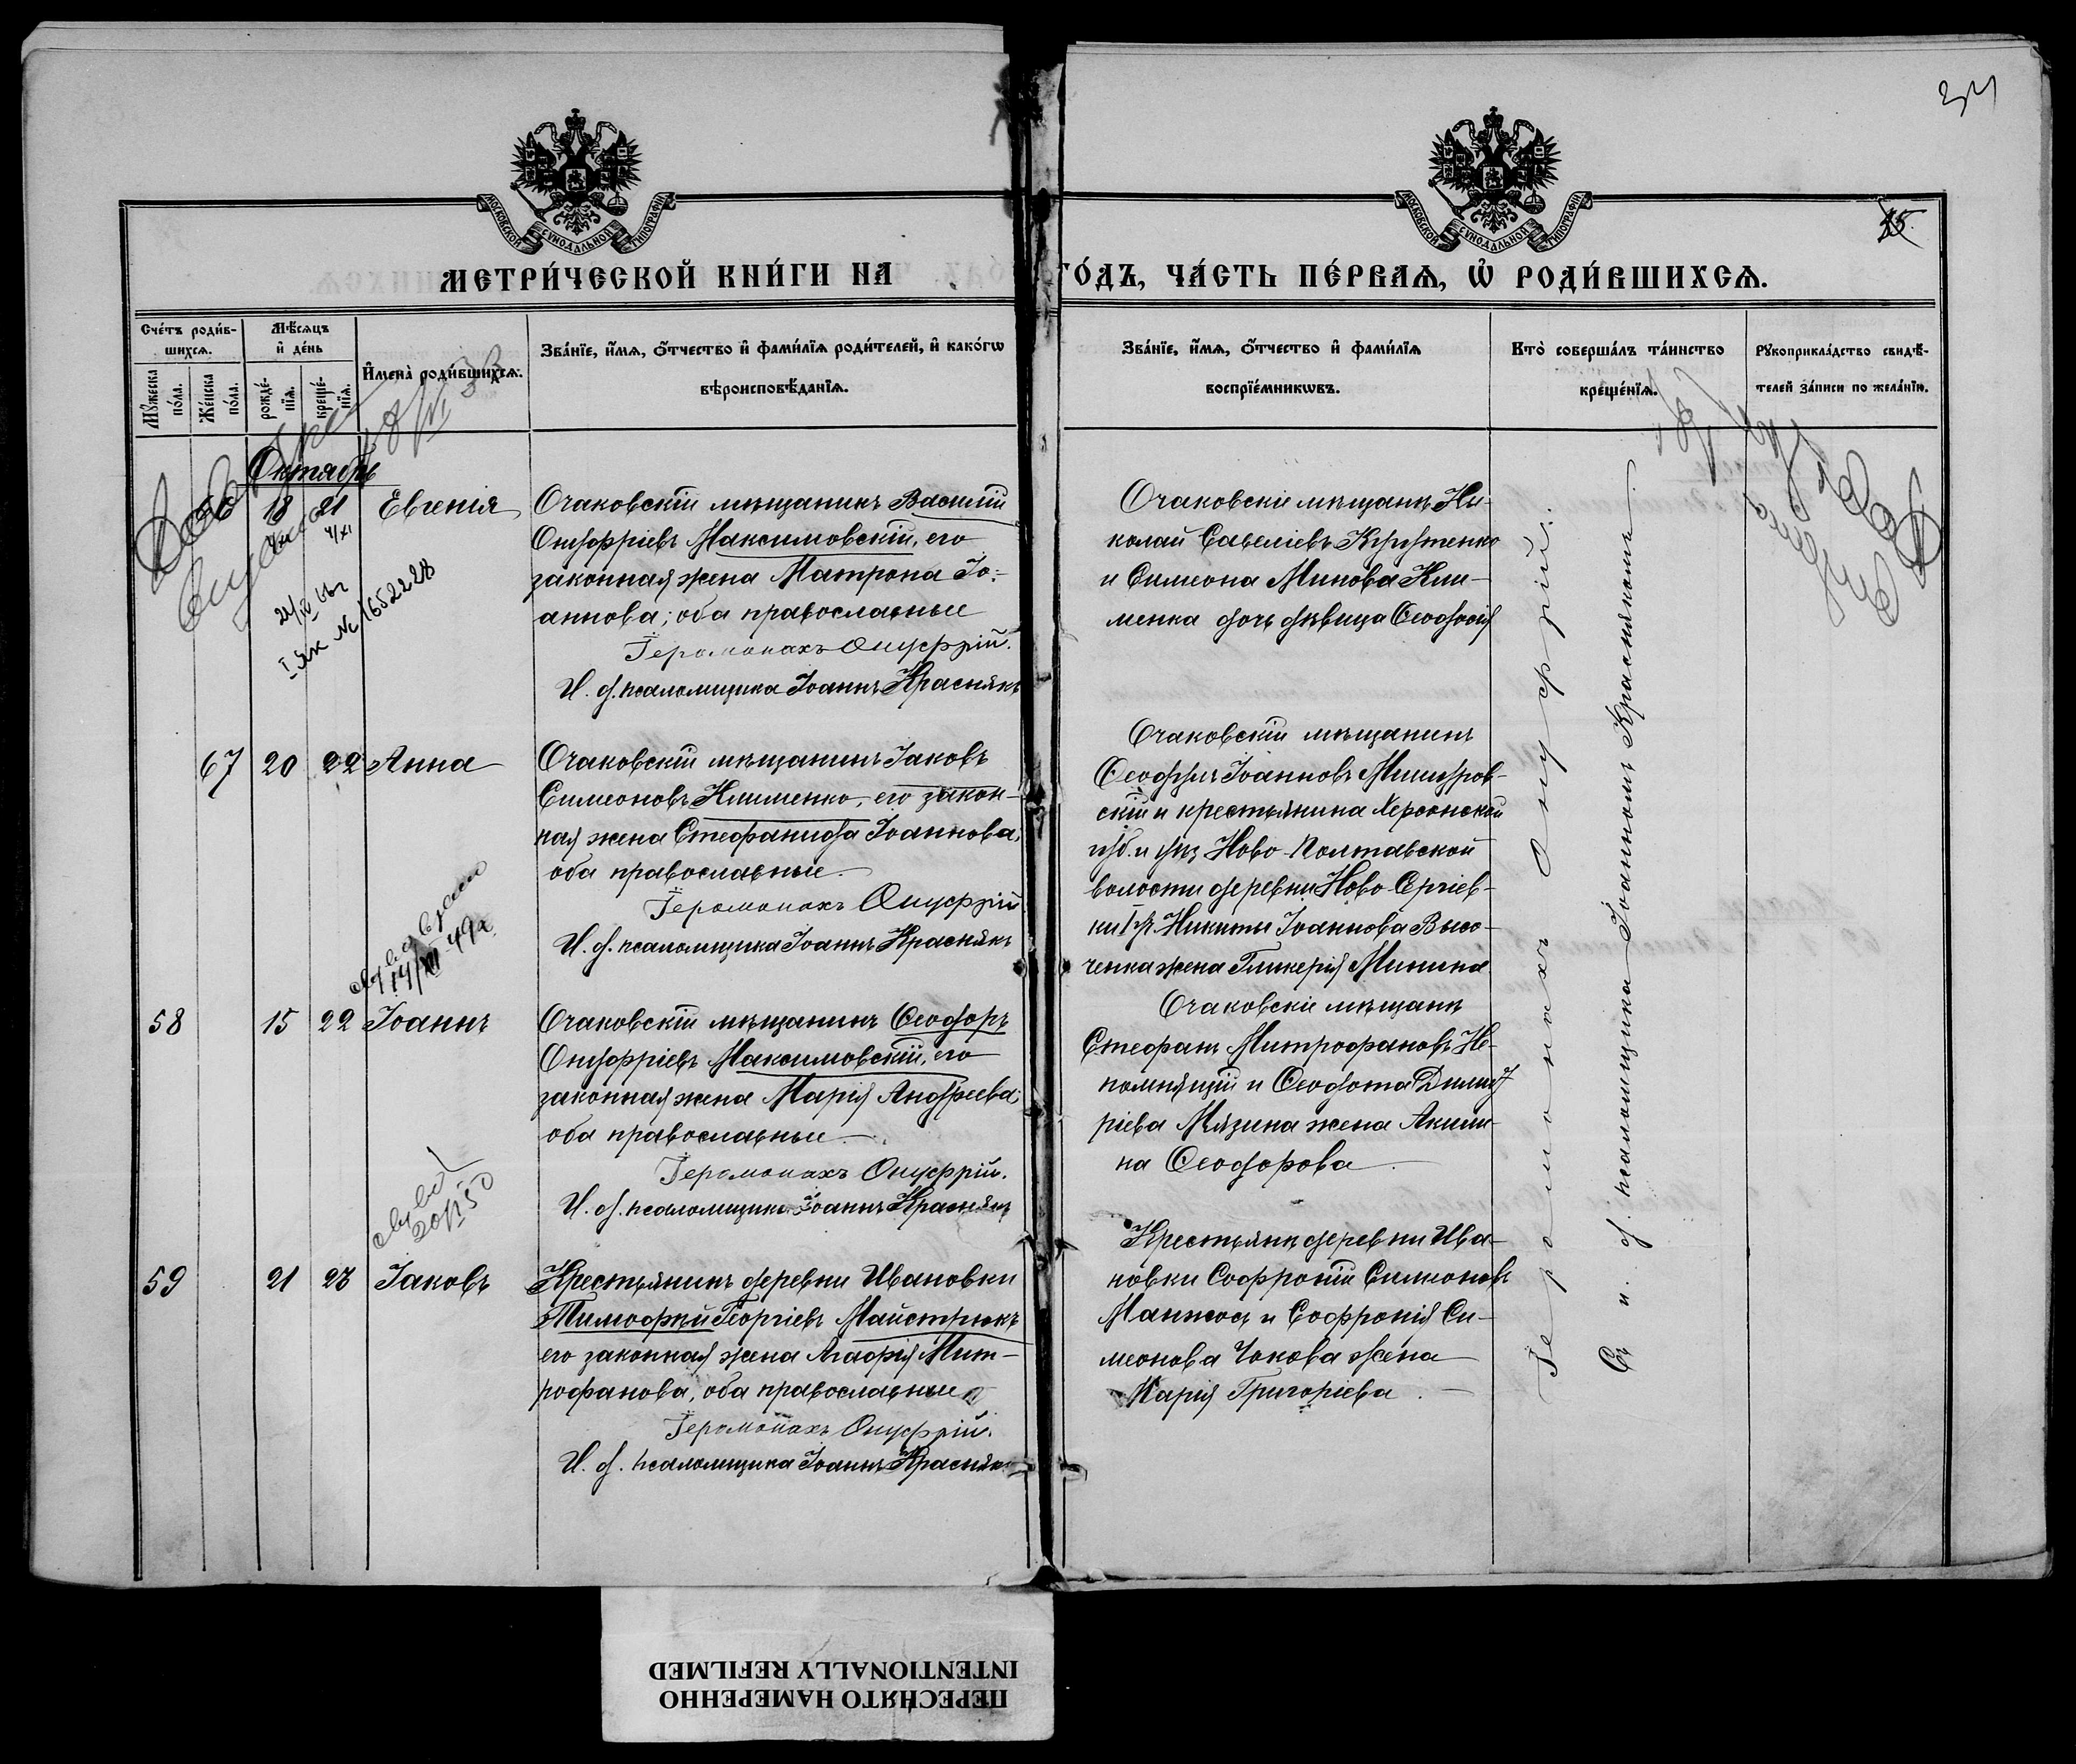 34
МОСКОВСКОЙ СѴНОДАЛЬНОЙ ТИПОГРАФІИ
МОСКОВСКОЙ СѴНОДАЛЬНОЙ ТИПОГРАФІИ
15.
МЕТРИ́ЧЕСКОЙ КНИ́ГИ НА
ГО́ДЪ, ЧА́СТЬ ПЕ́РВАѦ, Ѡ҆ РОДИ́ВШИХСѦ.
Сче́тъ роди́в-
шихсѧ.
Мѣ́сѧцъ
и҆ де́нь
Мꙋ́жеска
по́ла.
Же́нска
по́ла.
рожде́-
нїѧ.
креще́-
нїѧ.
И҆мена̀ роди́вшихсѧ.
Зва́нїе, и҆́мѧ, ѻ҆́тчество и҆ фами́лїѧ роди́телей, и҆ како́гѡ
вѣроисповѣ́данїѧ.
Зва́нїе, и҆́мѧ, ѻ҆́тчество и҆ фами́лїѧ
воспрїе́мникѡвъ.
Кто̀ соверша́лъ та́инство
креще́нїѧ.
Рꙋкоприкла́дство свидѣ́-
телей за́писи по жела́нїю.
Октябрь
18 21 Евгенія
4/XI
І ЯК № 1652228
Очаковскій мѣщанинъ Василій
Онуфріевъ Максимовскій, его
законная жена Матрона Іо-
аннова; оба православные
Іеромонахъ Онуфрій.
И. д. псаломщика Іоаннъ Краснякъ
Очаковскіе мѣщане Ни-
колай Савеліевъ
и Симеона Минова Кли-
менка дочь дѣвица Ѳеодосія
67 20 22 Анна
Очаковскій мѣщанинъ Іаковъ
Симеоновъ Клименко, его закон-
ная жена Стефанида Іоаннова,
оба православные.
Іеромонахъ Онуфрій
И. д. псаломщика Іоаннъ Краснякъ
Очаковскій мѣщанинъ
Іоанновъ
скій и крестьянина Херсонской
губ. и уѣз Ново-Полтавской
волости деревни Ново-Сергіев-
ки Никиты Іоаннова Высо-
ченка жена Гликерія Минина
58 15 22 Іоаннъ
14/XII-49г.
Очаковскій мѣщанинъ Ѳеодоръ
Онуфріевъ Максимовскій, его
законная жена Марія Андреева,
оба православные.
Іеромонахъ Онуфрій.
И. д. псаломщика Іоаннъ Краснякъ
Очаковскіе мѣщане
Стефанъ Митрофановъ Не-
помнящій и Ѳеодота Димит
ріева Мязина жена Акили-
на Ѳеодорова.
59 21 23 Іаковъ
Крестьянинъ деревни Ивановки
Тимофей Георгіевъ Майстрюкъ
его законная жена Агафія Мит-
рофанова, оба православные
Іеромонахъ Онуфрій.
И. д. псаломщика Іоаннъ Краснякъ
Крестьяне деревни Ива-
новки Софроній Симеоновъ
и Софронія Си-
меонова Чокова жена
Марія Григоріева.
Іеромонахъ Онуфрій.
Съ и. д. псаломщика Іоанномъ Краснякомъ
ПЕРЕСНЯТО НАМЕРЕННО
INTENTIONALLY REFILMED